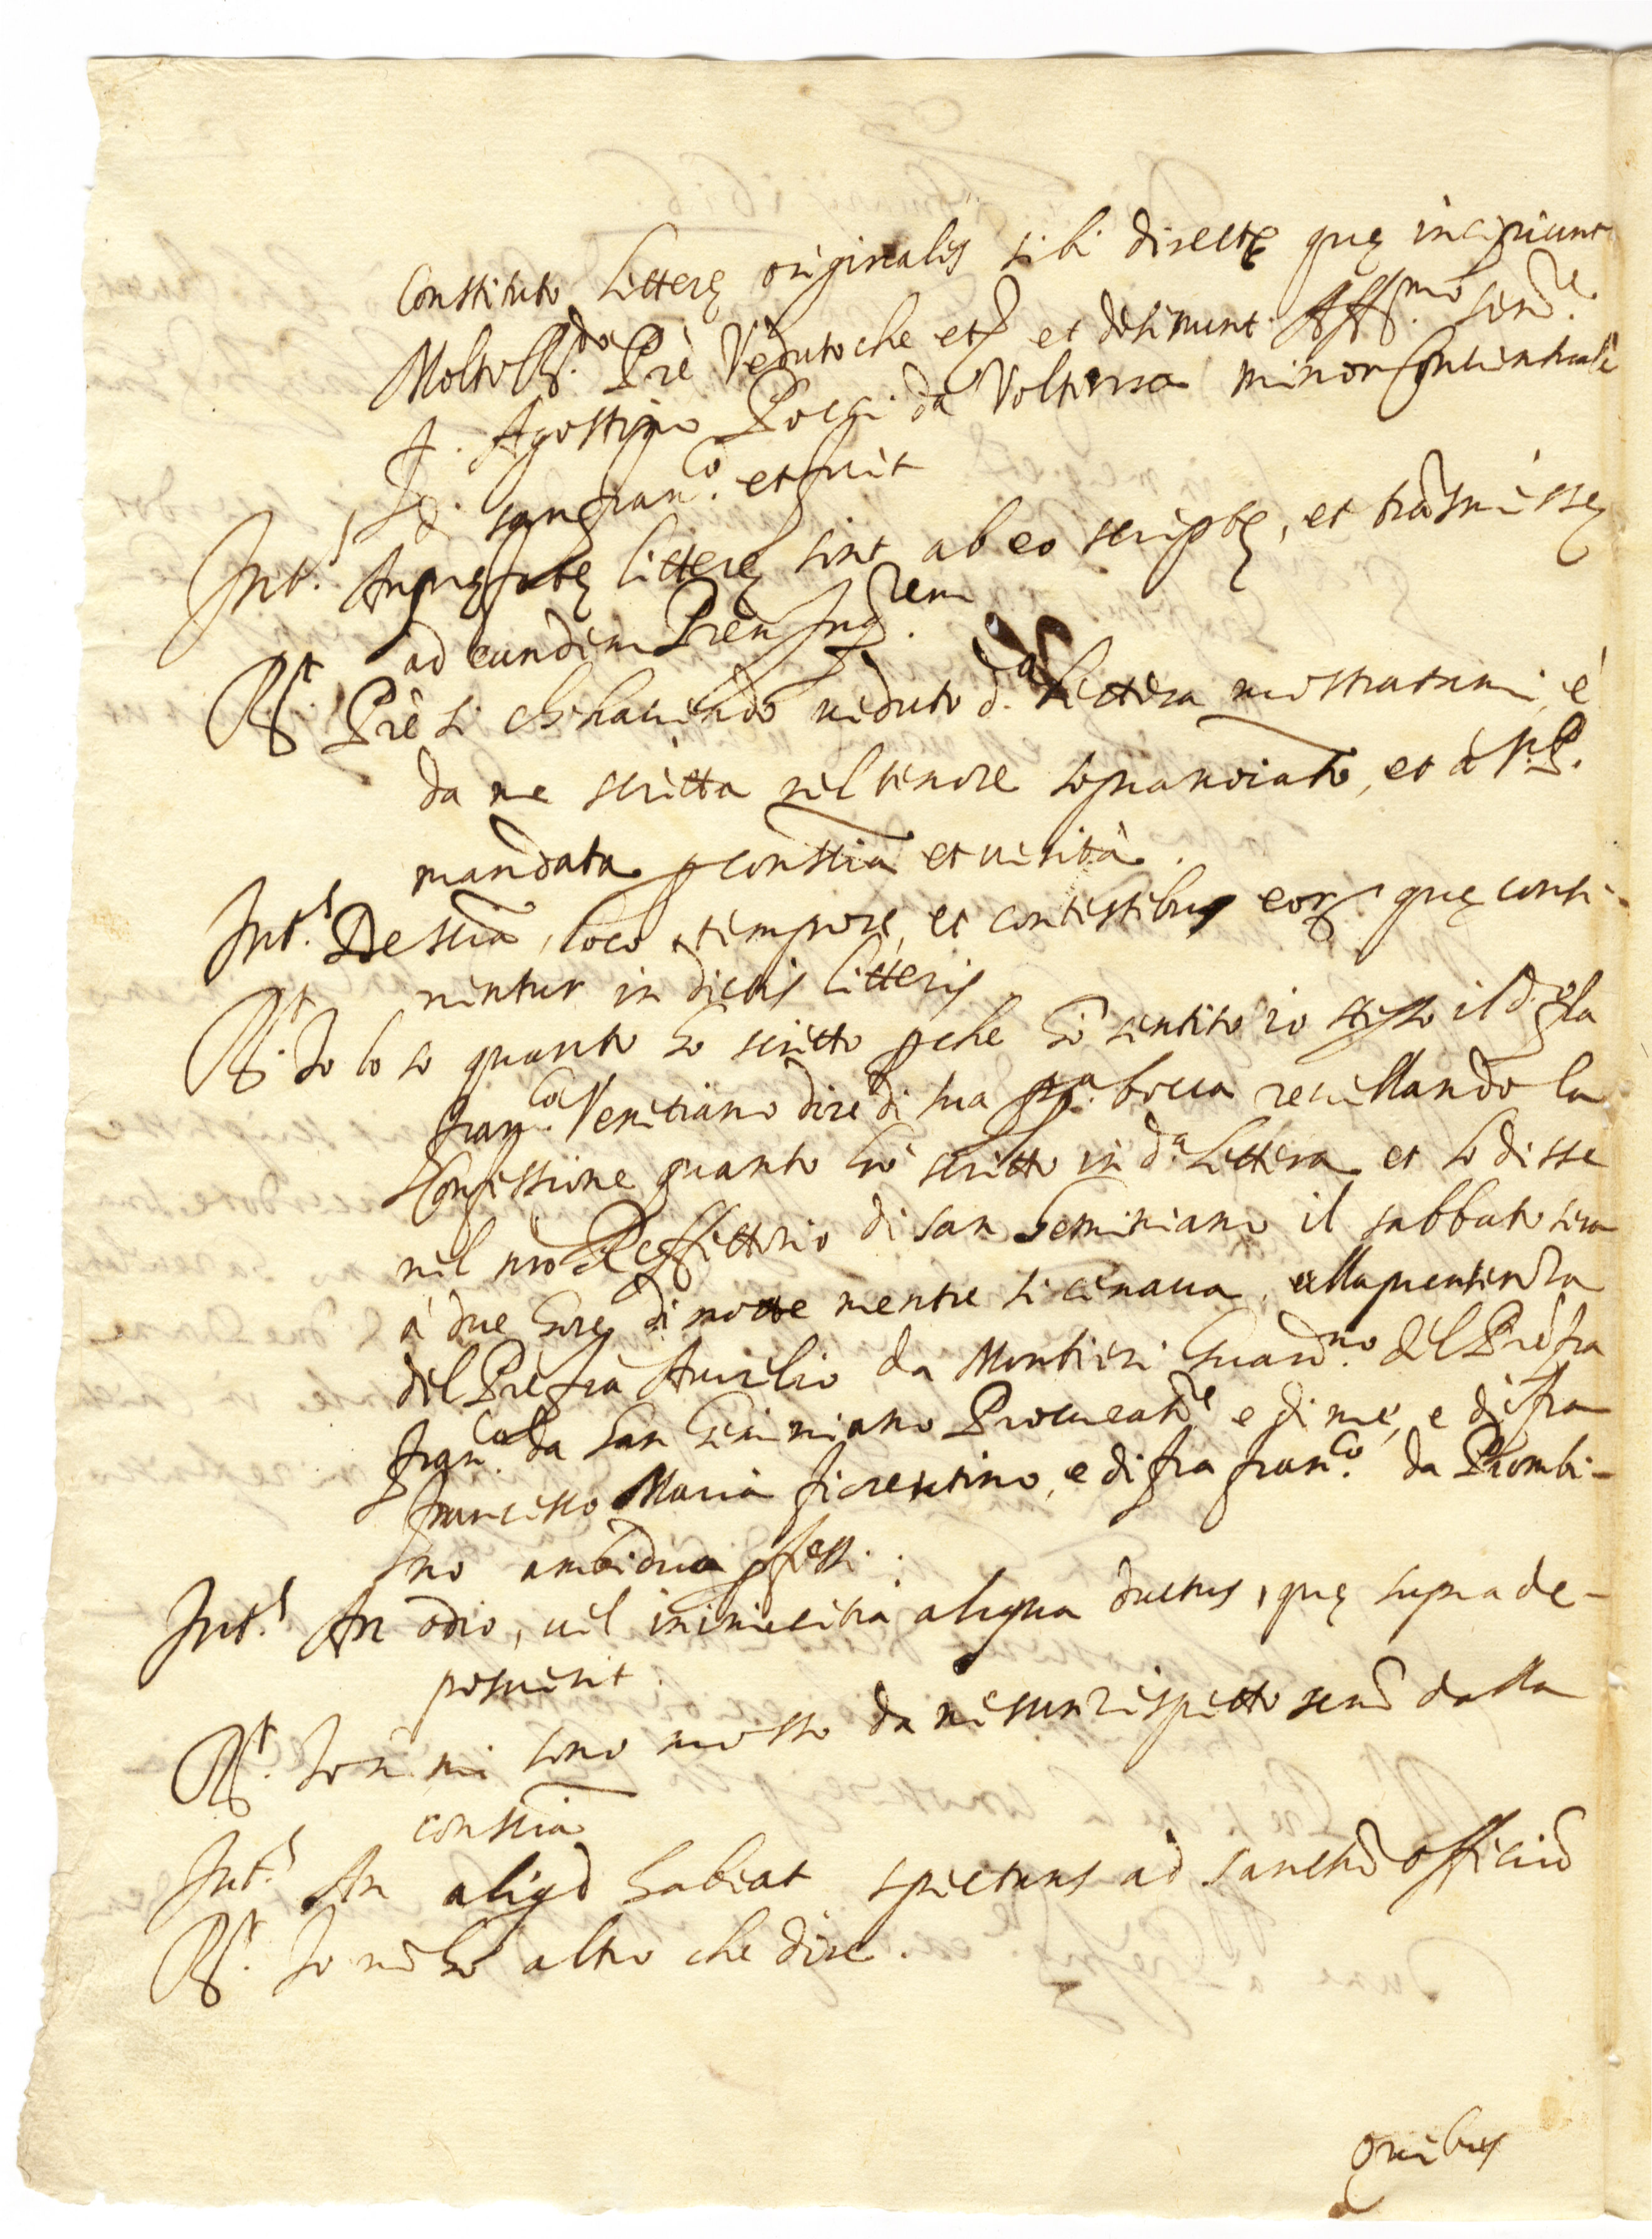 Constituto litterę originalis sibi directę quę incipiunt
Molto R.do Prè Veduto che etc et desinunt Aff.mo ser.re
f. Agostino Poggi da Volterra minor Conventuale
di san fran.co et fuit
Int.s An pręfatę litterę sint ab eo scriptę, et trãsmissę
ad eundem Prẽm Inq.rem
R.t Prè si ch'havendo veduto d.a lettera mostratami è
da me scritta nel tenore sopranoiato, et à V.P.
mandata p conscia et verità.
Int.s De scia, loco, tempore, et contestibus eorũ quę conti-
nentur in dictis litteris
R.t Io lo so quanto hò scritto pche hò sentito io stesso il d.o fra
fran.co Venetiano dire di sua ppa. bocca revellando la
Confessione quanto hò scritto in d.a lettera et lo disse
nel nro Reffettorio di san Geminiano il sabbato sera
à due hore di notte mentre si cenava, alla presenza
del Prè fra Aurelio da Montieri Guard.no del Prè fra
fran.co da San Geminiano Procurat.re e di me, e di fra
francesco Maria fiorentino, e di fra fran.co da Piombi-
no ambidua pfessi.
Int.s An odio, vel inimicitia aliqua ductus, quę supra de-
posuerit.
R.t Io nõ mi sono mosso da nesun rispetto senõ dalla
conscia
Int.s An aliqd habeat spectans ad sanctũ officiũ
R.t Io nõ hò altro che dire.
Quibus